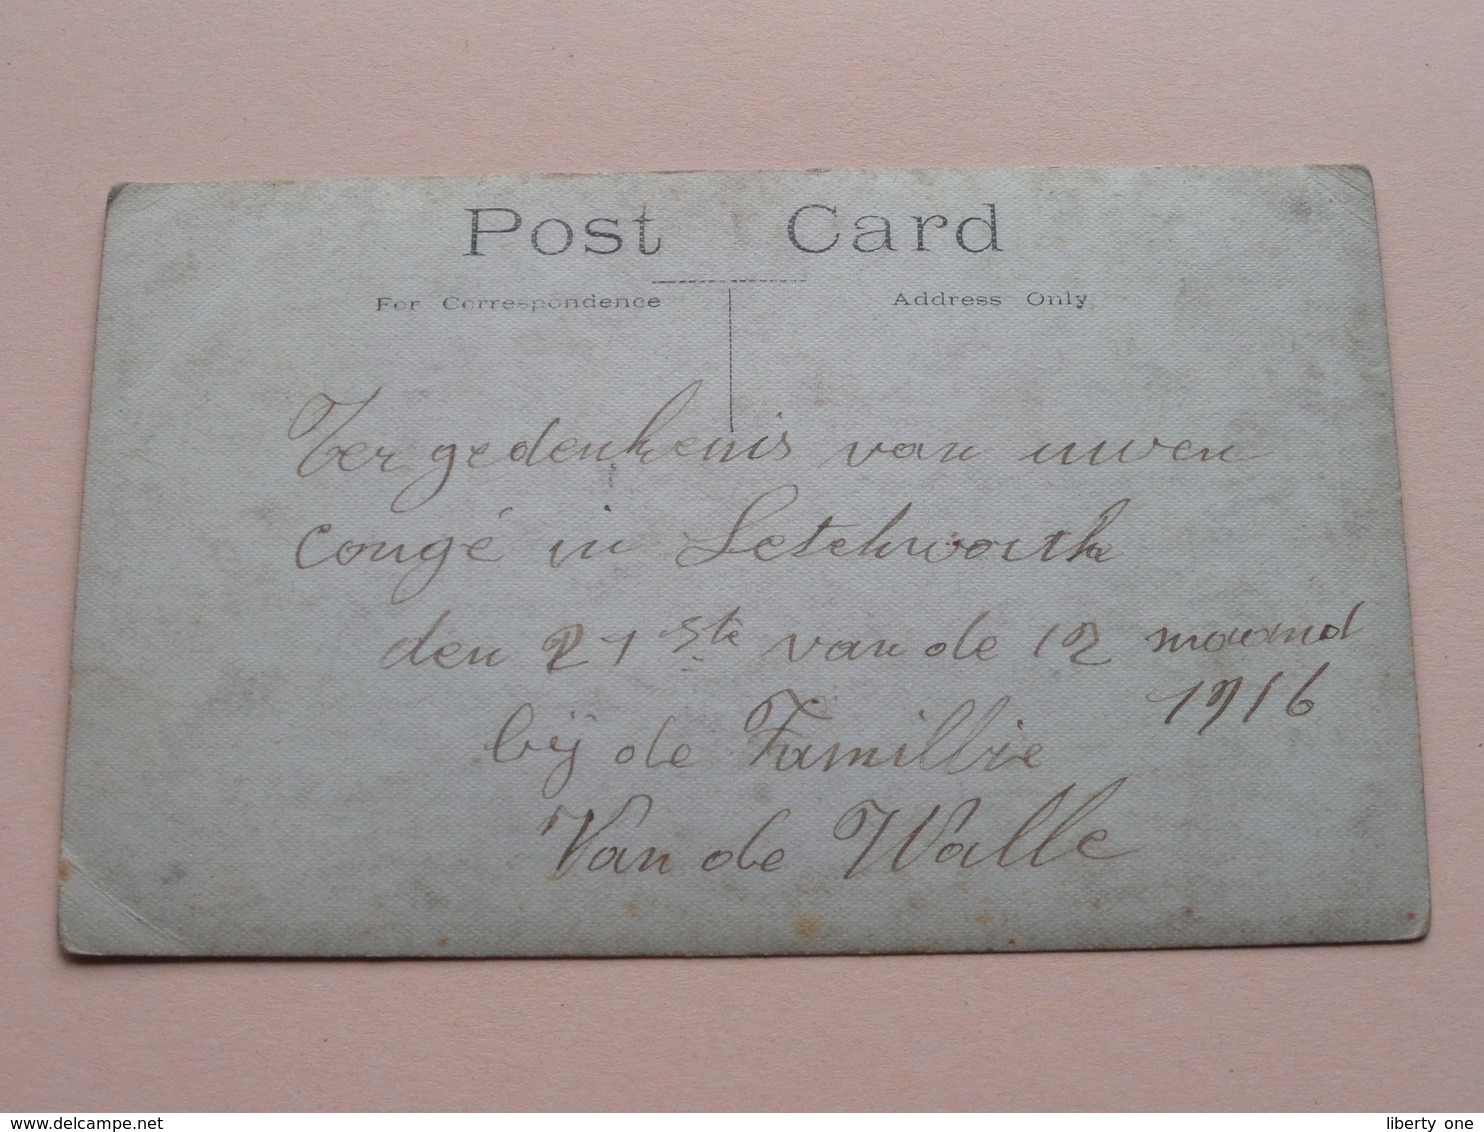 Post Card
For Correspondence Address Only
Ter gedenkenis van uwen
congé in Letchworth
den 21ste van de 12 maand
1916
bij de Famillie
Van de Walle
www.delcampe.net
liberty one